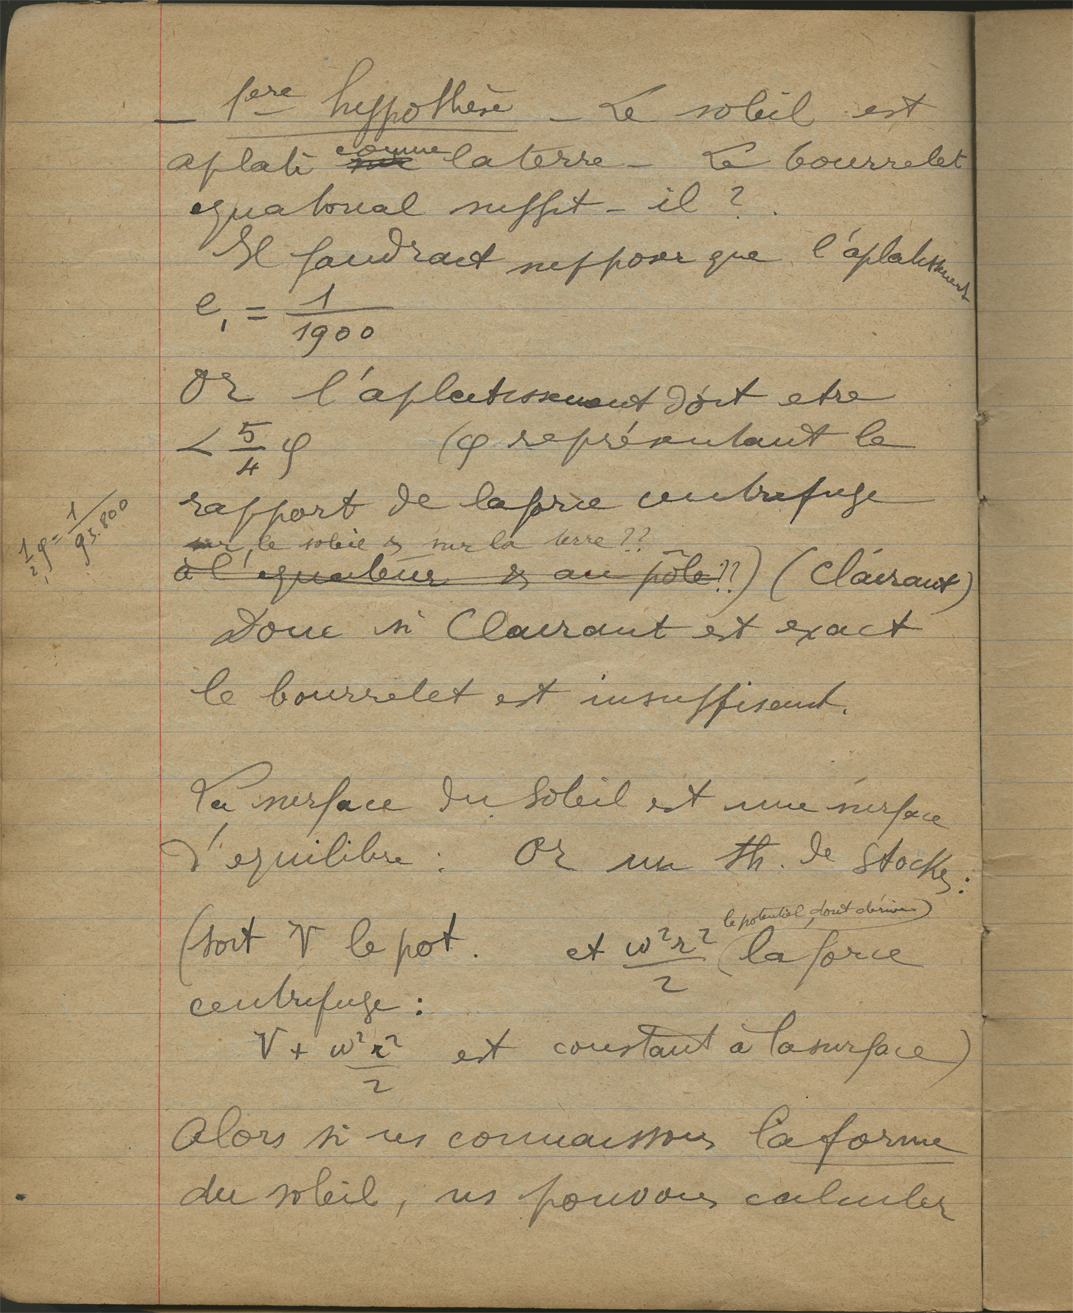 – 1ere hypothèse – Le soleil est
aplati comme la terre – Le bourrelet
equatorial suffit-il ?
Il faudrait supposer que l'aplatissement
e₁ = 1/1900
Or l'aplatissement doit etre
< 5/4 φ (φ représentant le
rapport de la force centrifuge
sur le soleil & sur la terre ??
à l'equateur & au pôle ??) (Clairaut)
1/2 φ = 1/93.800
Donc si Clairaut est exact
le bourrelet est insuffisant.
La surface du Soleil est une surface
d'equilibre : Or un th. de Stockes :
(soit V le pot. et ω²r²/2 (le potentiel dont dérive) la force
centrifuge :
V + ω²r²/2 est constant à la surface)
Alors si ns connaissons la forme
du soleil, ns pouvons calculer